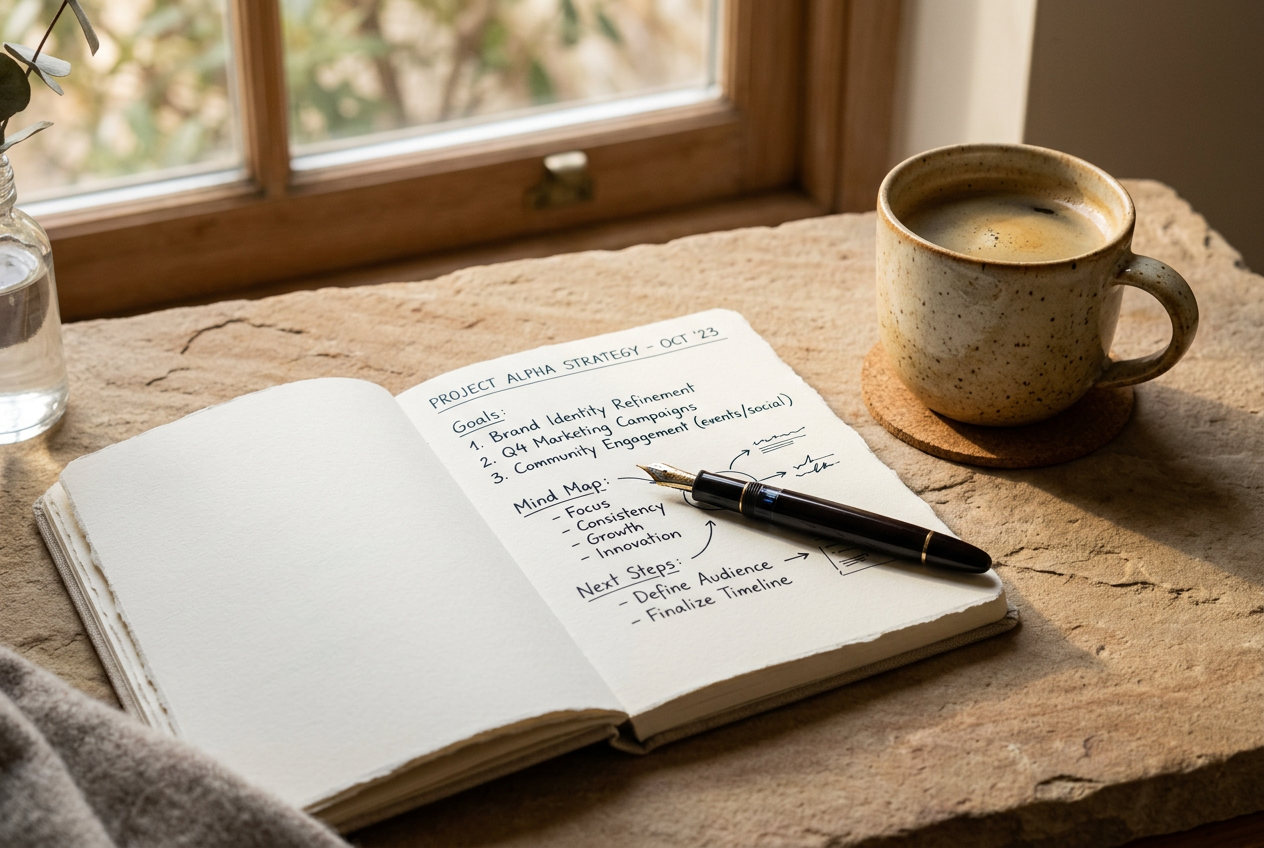 PROJECT ALPHA STRATEGY - OCT '23
Goals:
1. Brand Identity Refinement
2. Q4 Marketing Campaigns
3. Community Engagement (events/social)
Mind Map:
- Focus
- Consistency
- Growth
- Innovation
Next Steps:
- Define Audience
- Finalize Timeline